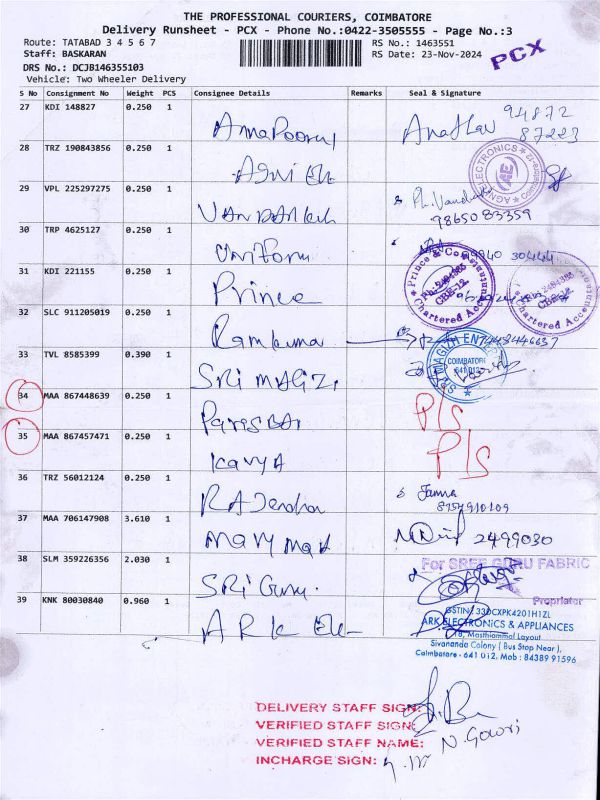 THE PROFESSIONAL COURIERS, COIMBATORE
Delivery Runsheet - PCX - Phone No.:0422-3505555 - Page No.:3
Route: TATABAD 3 4 5 6 7
RS No.: 1463551
Staff: BASKARAN
RS Date: 23-Nov-2024
PCX
DRS No.: DCJB146355103
Vehicle: Two Wheeler Delivery
S No Consignment No Weight PCS Consignee Details Remarks Seal & Signature
27 KDI 148827 0.250 1 Annapoorna 94872
87223
28 TRZ 190843856 0.250 1 Agni Ele
AGNI ELECTRONICS
29 VPL 225297275 0.250 1
9865083359
30 TRP 4625127 0.250 1 Uniform 99940 30444
31 KDI 221155 0.250 1 Prince
Prince & Comsiavjung
Ph: 2494985
CBE-12.
Chartered Accountants
32 SLC 911205019 0.250 1 Ramkumar
33 TVL 8585399 0.390 1 SRI MAGIZI
SRI MAGIZH ENT
COIMBATORE
641 012
34 MAA 867448639 0.250 1 P/S
35 MAA 867457471 0.250 1 Kavya P/S
36 TRZ 56012124 0.250 1 Rajendran
37 MAA 706147908 3.610 1 Mary Mat 2499030
38 SLM 359226356 2.030 1 SRI Guru
For SREE GURU FABRIC
Proprietor
39 KNK 80030840 0.960 1 ARK Ele
GSTIN: 33DCXPK4201H1ZL
ARK ELECTRONICS & APPLIANCES
18, Masthiammal Layout
Sivananda Colony ( Bus Stop Near ),
Coimbatore - 641 012. Mob : 84389 91596
DELIVERY STAFF SIGN:
VERIFIED STAFF SIGN:
VERIFIED STAFF NAME: N. Gowri
INCHARGE SIGN: